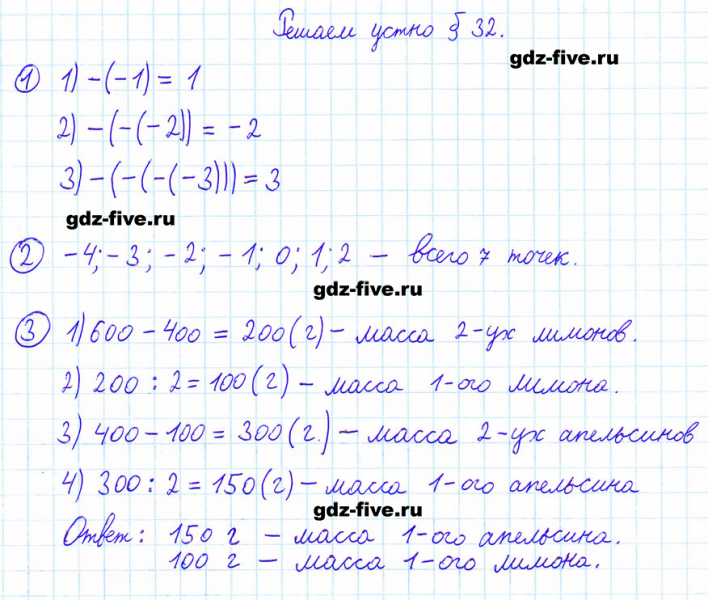 Решаем устно § 32.
gdz-five.ru
① 1) -(-1) = 1
2) -(-(-2)) = -2
3) -(-(-(-3))) = 3
gdz-five.ru
② -4; -3; -2; -1; 0; 1; 2 – всего 7 точек.
gdz-five.ru
③ 1) 600 - 400 = 200 (г) – масса 2-ух лимонов.
2) 200 : 2 = 100 (г) – масса 1-ого лимона.
3) 400 - 100 = 300 (г.) – масса 2-ух апельсинов
4) 300 : 2 = 150 (г) – масса 1-ого апельсина
gdz-five.ru
Ответ: 150 г – масса 1-ого апельсина.
100 г – масса 1-ого лимона.